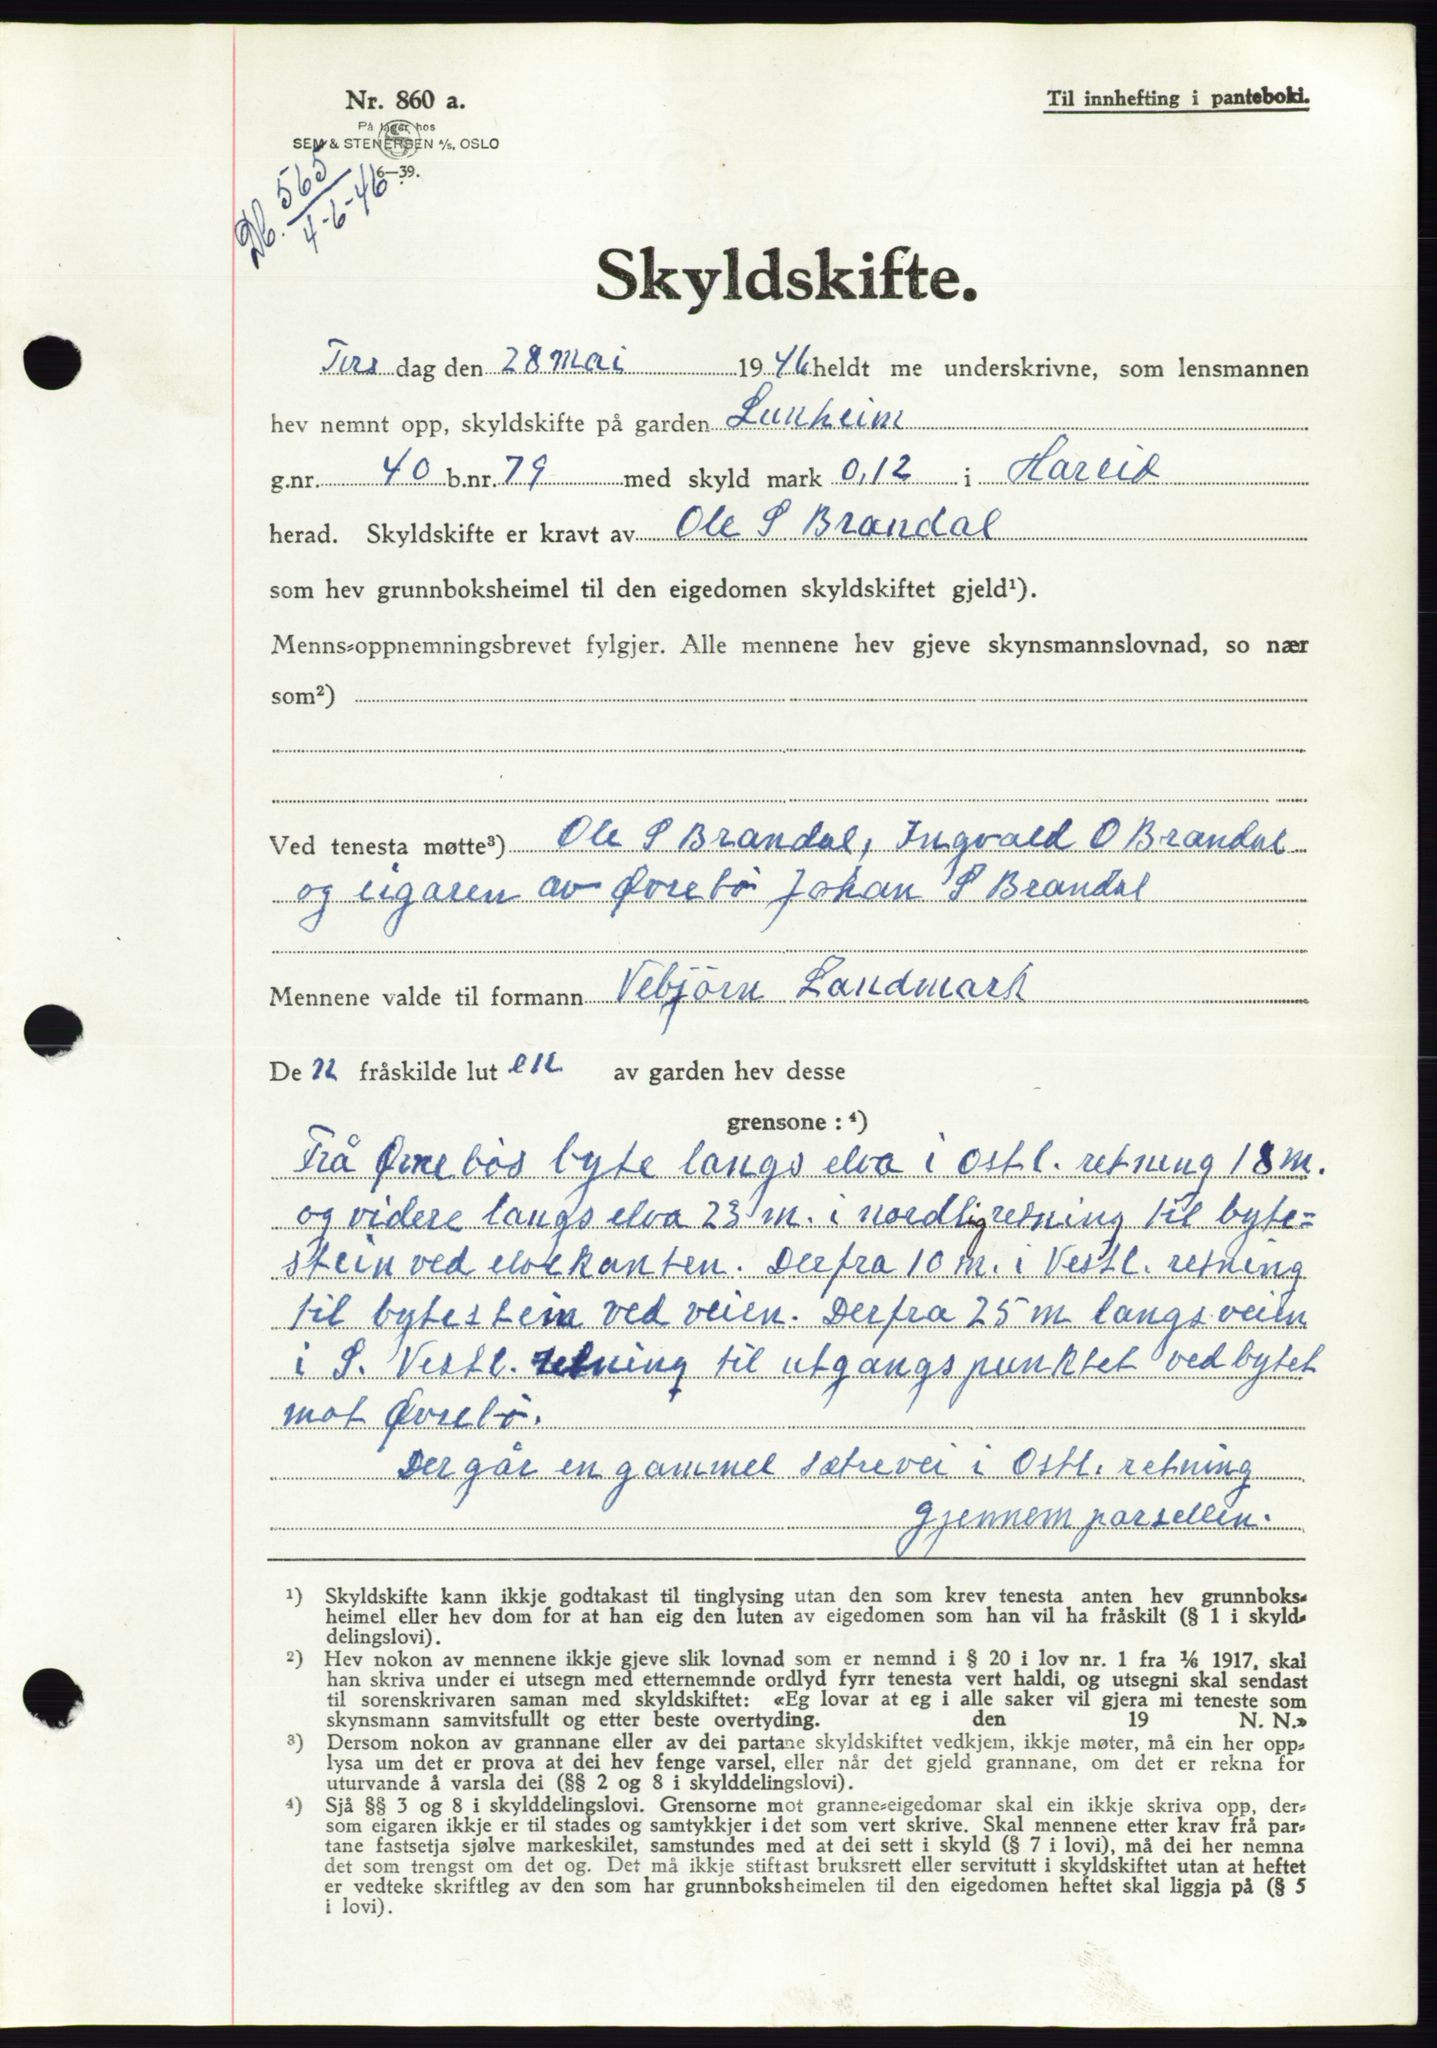 Nr. 860 a.
Til innhefting i panteboki.
På lager hos
SEM & STENERSEN A/S, OSLO
6—39.
Db. 565
4-6-46
Skyldskifte.
Tirs dag den 28 mai 1946 heldt me underskrivne, som lensmannen
hev nemnt opp, skyldskifte på garden Lunheim
g.nr. 40 b.nr. 79 med skyld mark 0,12 i Hareid
herad. Skyldskifte er kravt av Ole S Brandal
som hev grunnboksheimel til den eigedomen skyldskiftet gjeld¹).
Menns-oppnemningsbrevet fylgjer. Alle mennene hev gjeve skynsmannslovnad, so nær
som²)
Ved tenesta møtte³) Ole S Brandal, Ingvald O Brandal
og eigaren av Øvrebö Johan S Brandal
Mennene valde til formann Vebjörn Landmark
De n fråskilde lut en av garden hev desse
grensone : ⁴)
Frå Øvrebös byte langs elva i Ostl. retning 18 m.
og videre langs elva 23 m. i nordlig retning til byte=
stein ved elvekanten. Derfra 10 m. i Vestl. retning
til bytestein ved veien. Derfra 25 m langs veien
i S. Vestl. retning til utgangspunktet ved bytet
mot Øvrebö.
Der går en gammel sætrevei i Ostl. retning
gjennem parsellen.
¹) Skyldskifte kann ikkje godtakast til tinglysing utan den som krev tenesta anten hev grunnboks-
heimel eller hev dom for at han eig den luten av eigedomen som han vil ha fråskilt (§ 1 i skyld-
delingslovi).
²) Hev nokon av mennene ikkje gjeve slik lovnad som er nemnd i § 20 i lov nr. 1 fra 1/6 1917, skal
han skriva under ei utsegn med etternemnde ordlyd fyrr tenesta vert haldi, og utsegni skal sendast
til sorenskrivaren saman med skyldskiftet: «Eg lovar at eg i alle saker vil gjera mi teneste som
skynsmann samvitsfullt og etter beste overtyding. den 19 N. N.»
³) Dersom nokon av grannane eller av dei partane skyldskiftet vedkjem, ikkje møter, må ein her opp-
lysa um det er prova at dei hev fenge varsel, eller når det gjeld grannane, om det er rekna for
uturvande å varsla dei (§§ 2 og 8 i skylddelingslovi).
⁴) Sjå §§ 3 og 8 i skylddelingslovi. Grensorne mot granne-eigedomar skal ein ikkje skriva opp, der-
som eigaren ikkje er til stades og samtykkjer i det som vert skrive. Skal mennene etter krav frå par-
tane fastsetja sjølve markeskilet, samstundes med at dei sett i skyld (§ 7 i lovi), må dei her nemna
det som trengst om det og. Det må ikkje stiftast bruksrett eller servitutt i skyldskiftet utan at heftet
er vedteke skriftleg av den som har grunnboksheimelen til den eigedomen heftet skal liggja på (§ 5
i lovi).